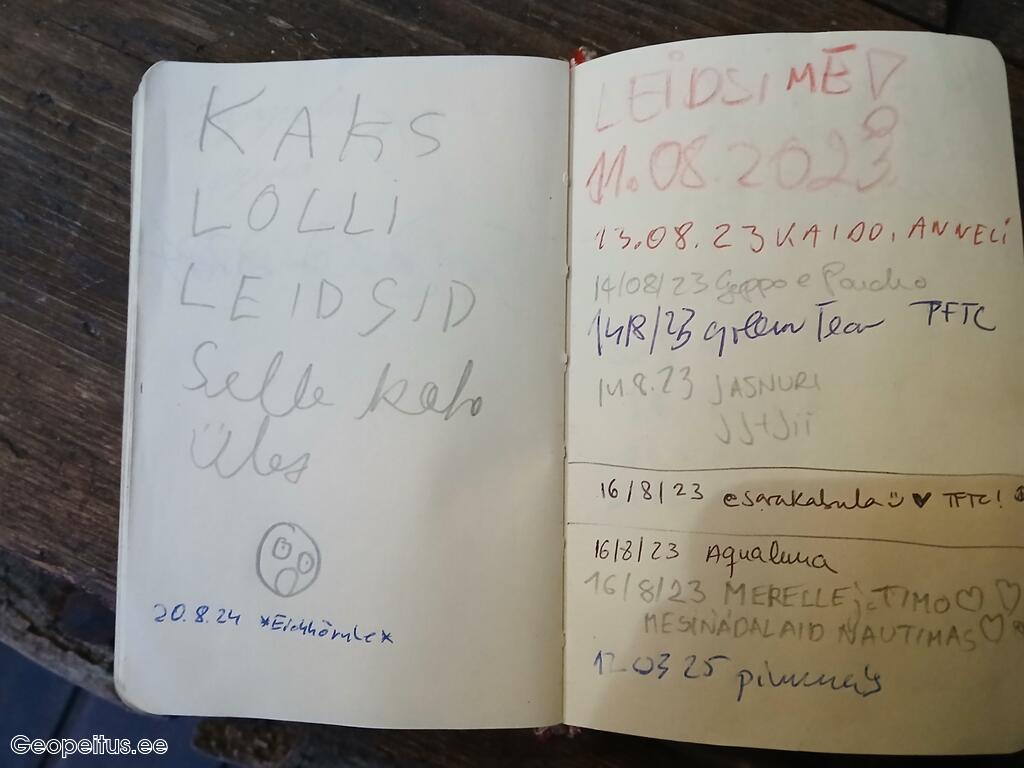 KAKS
LOLLI
LEIDSID
Selle koho
Üles
20.8.24 *Eichhörnle*
LEIDSIME
11.08.2023
13.08.23 KAIDO, ANNELI
14/08/23 Geppo e
14/8/23 golem Tean TFTC
14.8.23 JASNURI
JJ+Jii
16/8/23 esarakabula :) ♥ TFTC!
16/8/23 Aqualuna
16/8/23 MERELLE ja TIMO ♡ ♡
MESINÄDALAID NAUTIMAS ♡
12 03 25
Geopeitus.ee